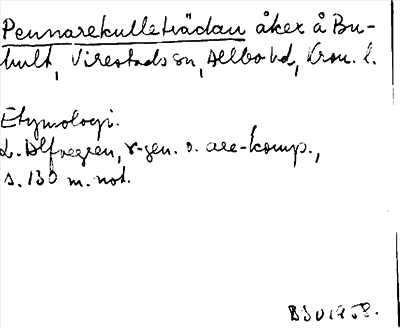 Pennarekulleträdan åker å Bu-
hult, Virestads sn, Allbo hd, Kron. l.
Etymologi.
L. Alfvegren, r-gen. o. are-komp.,
s. 130 m. not.
BSU 1958.